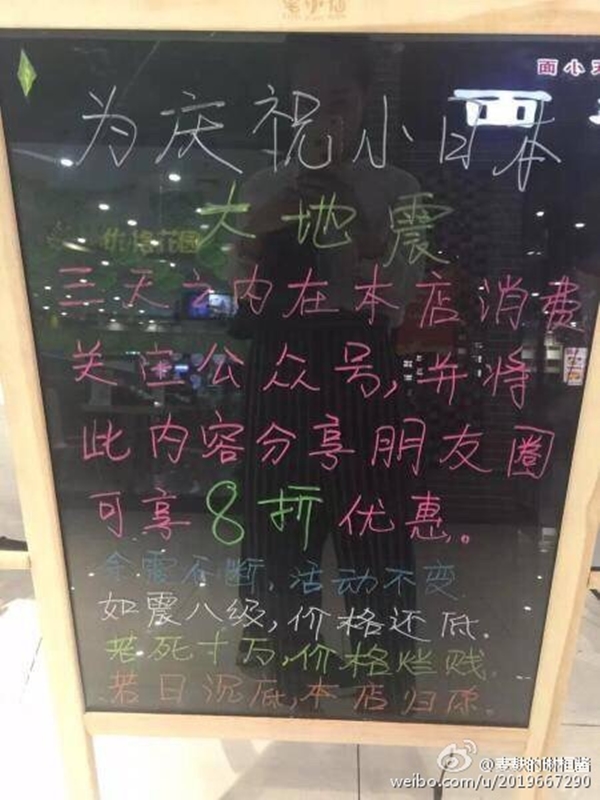 面小天
为庆祝小日本
大地震
三天之内在本店消费
关注公众号,并将
此内容分享朋友圈
可享8折优惠。
余震不断,活动不变
如震八级,价格还低.
若死十万,价格烂贱.
若日沉底,本店归你
weibo.com/u/2019667290